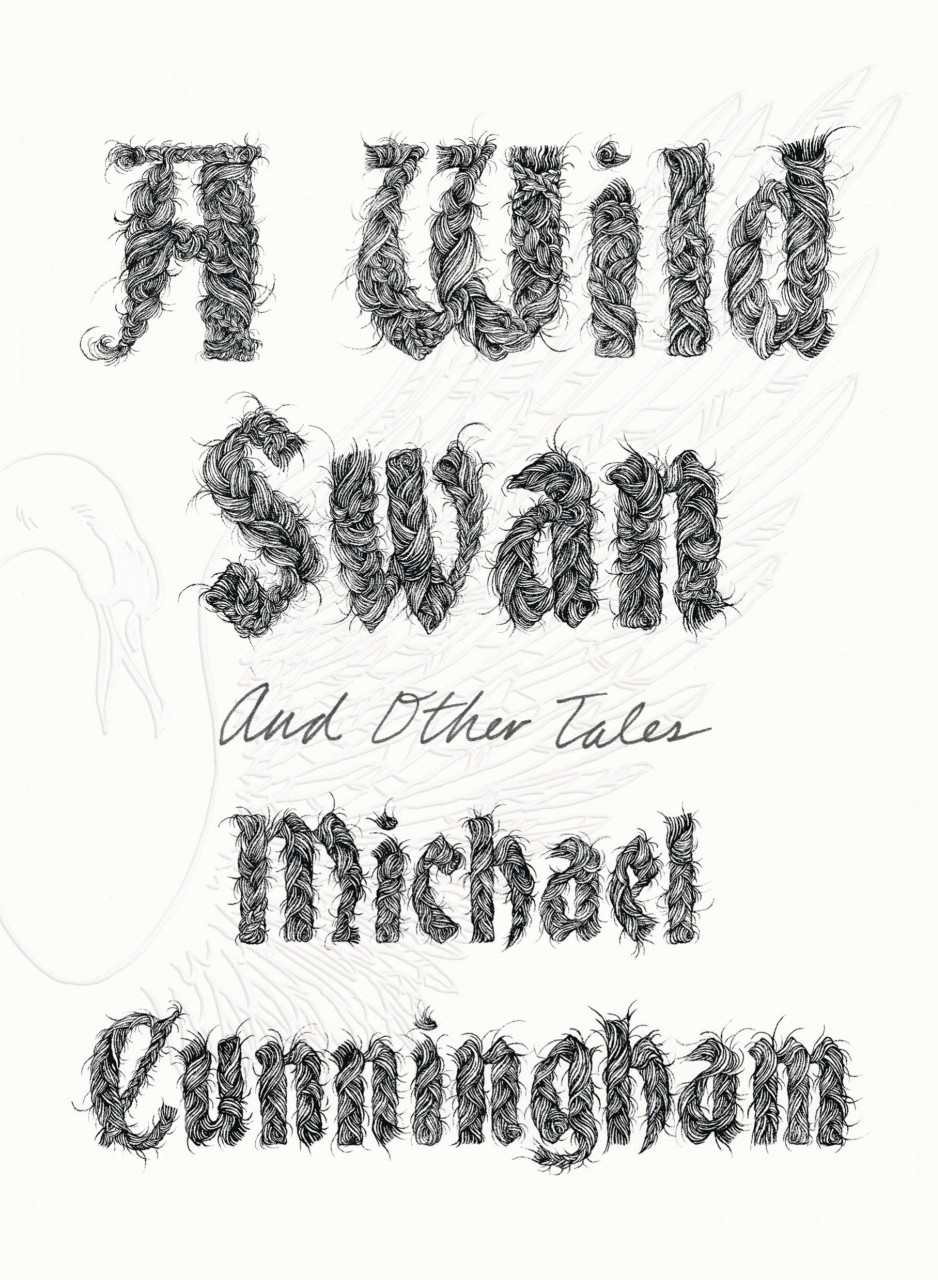 A Wild
Swan
And Other Tales
Michael
Cunningham